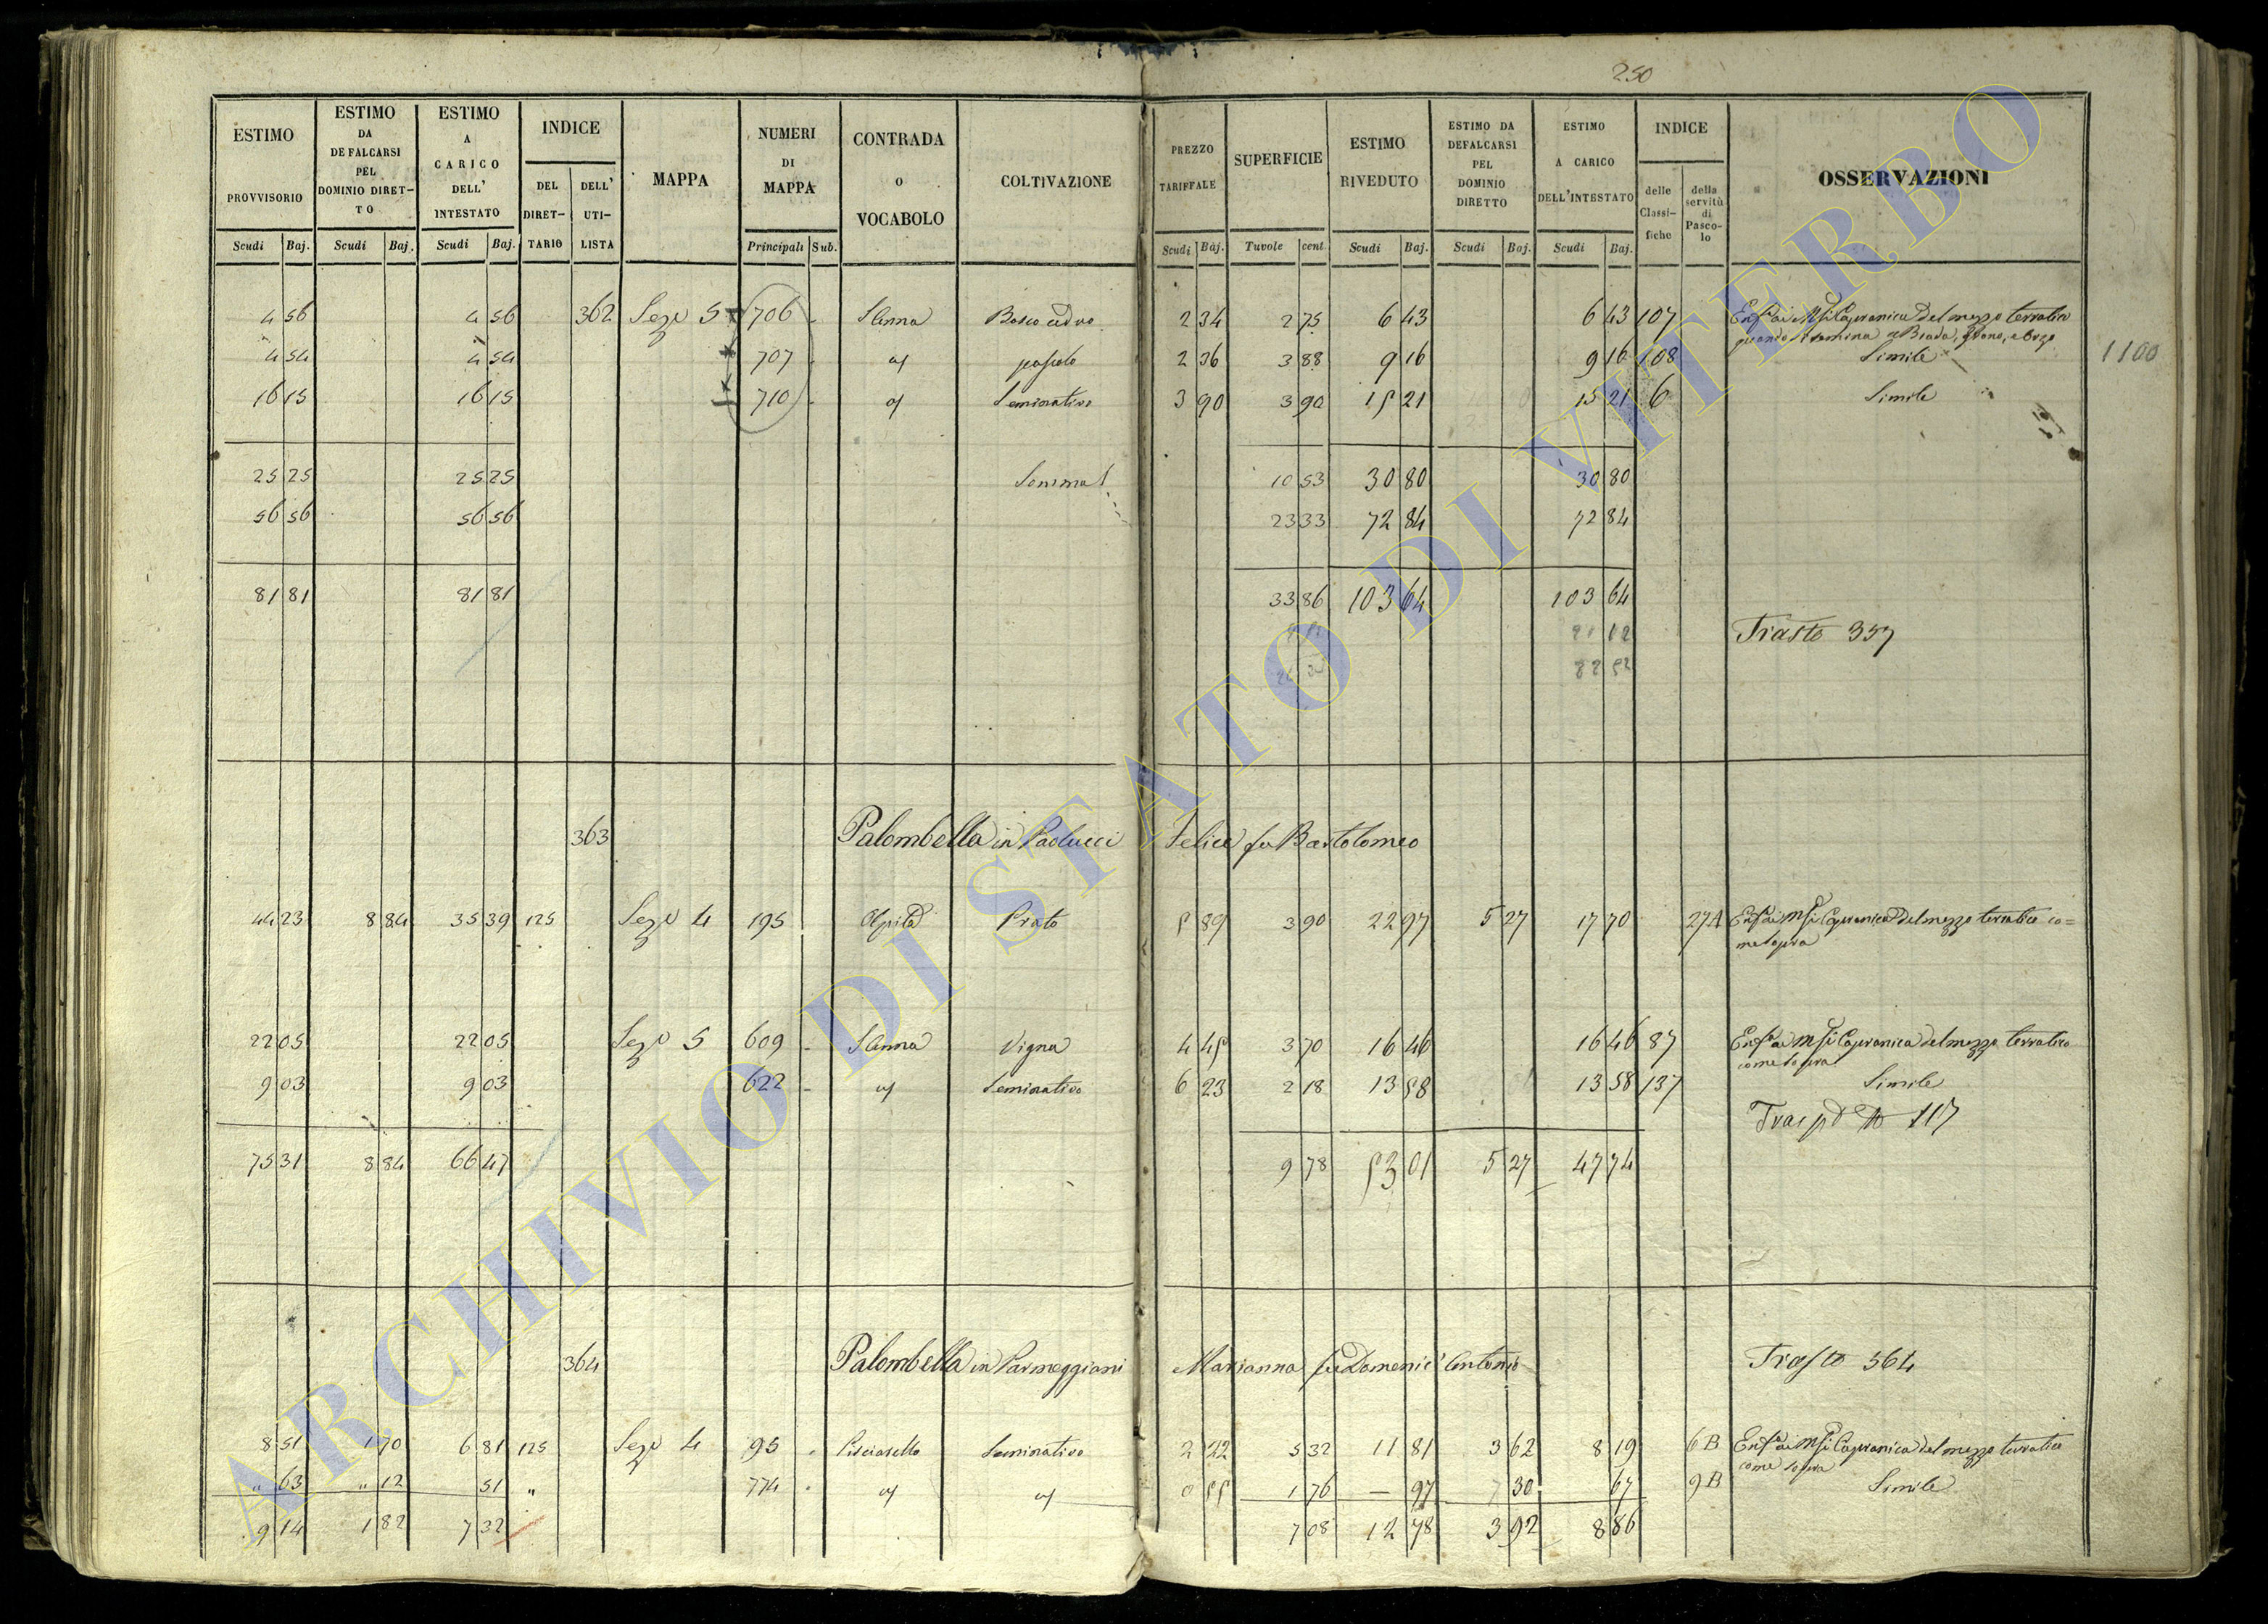 250
ESTIMO PROVVISORIO Scudi Baj.
ESTIMO DA DEFALCARSI PEL DOMINIO DIRETTO Scudi Baj.
ESTIMO A CARICO DELL' INTESTATO Scudi Baj.
INDICE DEL DIRETTARIO DELL' UTILISTA
MAPPA
NUMERI DI MAPPA Principali Sub.
CONTRADA O VOCABOLO
COLTIVAZIONE
PREZZO TARIFFALE Scudi Baj.
SUPERFICIE Tavole cent.
ESTIMO RIVEDUTO Scudi Baj.
ESTIMO DA DEFALCARSI PEL DOMINIO DIRETTO Scudi Baj.
ESTIMO A CARICO DELL'INTESTATO Scudi Baj.
INDICE delle Classifiche della servitù di Pascolo
OSSERVAZIONI
4 56 4 56 362 Sez. 5 706 S. Anna Bosco ceduo 2 34 2 75 6 43 6 43 107 Capranica del mezzo terratico
quando si semina a Biada, grano, e orzo
4 54 4 54 707 pascolo 2 36 3 88 9 16 9 16 108 Simile 1100
16 15 16 15 710 Seminativo 3 90 3 90 15 21 15 21 6 Simile
25 25 25 25 Somma 10 53 30 80 30 80
56 56 56 56 23 33 72 84 72 84
81 81 81 81 33 86 103 64 103 64
21 12 Trasto 357
82 52
363 Palombella in Paolucci Felice fu Bartolomeo
44 23 8 84 35 39 125 Sez. 4 195 Prato 5 89 3 90 22 97 5 27 17 70 27A Capranica del mezzo terratico co=
me sopra
22 05 22 05 Sez. 5 609 S. Anna Vigna 4 45 3 70 16 46 16 46 87 Capranica del mezzo terratico
come sopra
9 03 9 03 622 Seminativo 6 23 2 18 13 58 13 58 137 Simile
117
75 31 8 84 66 47 9 78 53 01 5 27 47 74
364 Palombella in Parmeggiani Marianna fu Domenic' Antonio Trasto 564
8 51 1 70 6 81 125 Sez. 4 95 Pisciarello Seminativo 2 22 5 32 11 81 3 62 8 19 6B Capranica del mezzo terratico
come sopra
" 63 " 12 51 " 774 0 55 1 76 — 97 30 67 9B Simile
9 14 1 82 7 32 7 08 12 78 3 92 8 86
ARCHIVIO DI STATO DI VITERBO